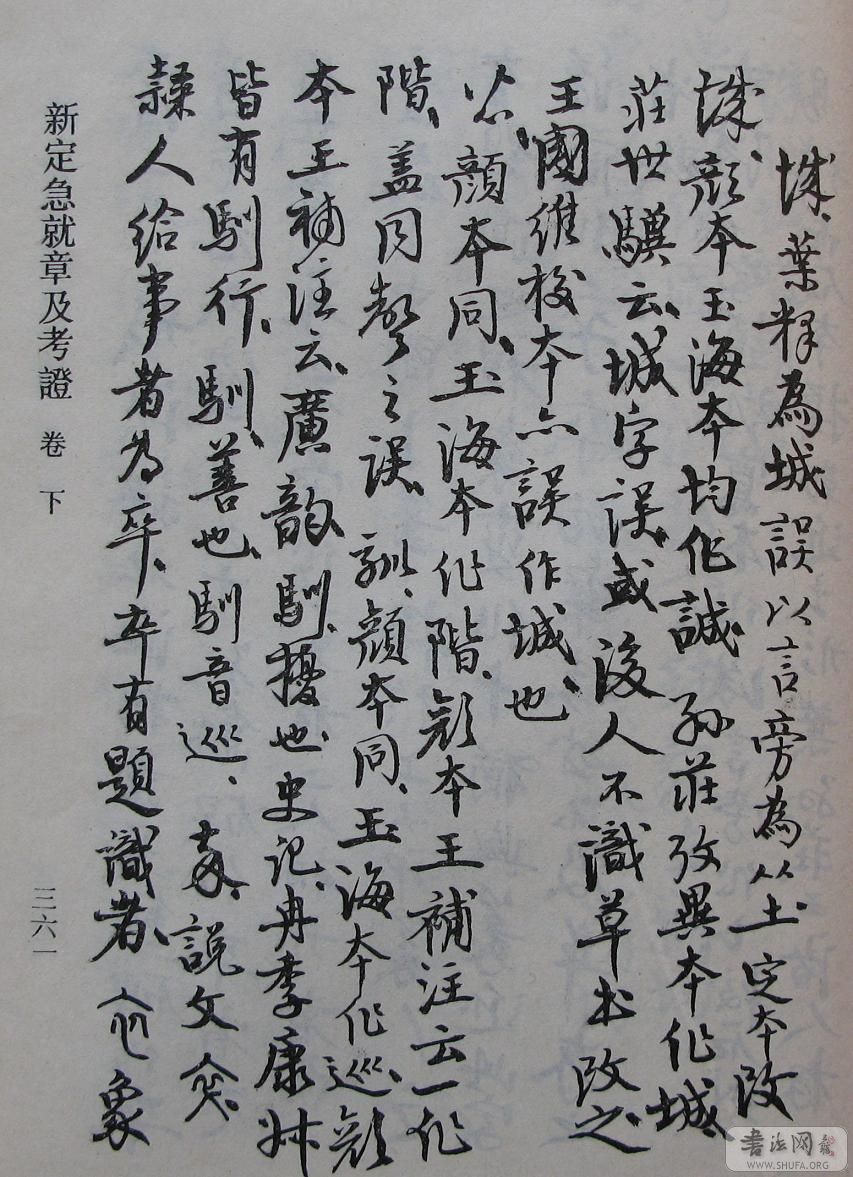 葉釋為城誤以言旁為从土定本改
顏本玉海本均作誠 孫莊攷異本作城
莊世驥云城字誤或後人不識草书改之
王國維校本亦誤作城也
顏本同玉海本作階顏本王補注云一作
階蓋同聲之誤 訓顏本同玉海本作巡顏
本王補注云廣韵馴擾也史記冉季康
皆有馴行馴善也馴音巡 說文
隸人給事者為卒卒有題識者象
新定急就章及考證 卷下
三六一
书法网
WWW.SHUFA.ORG